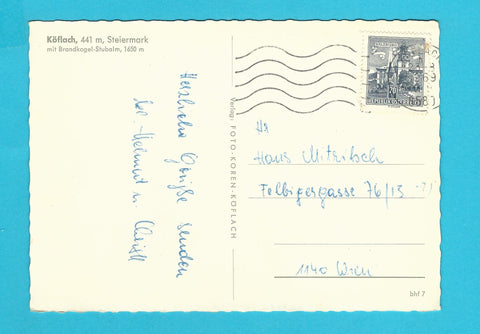 Köflach, 441 m, Steiermark
mit Brandkogel-Stubalm, 1650 m
Herzliche Grüße senden
Helmut u.
Verlag: FOTO-KOREN-KÖFLACH
REPUBLIK ÖSTERREICH
Hr
Hans Mitribach
Felbigergasse 76/13
1140 Wien
bhf 7